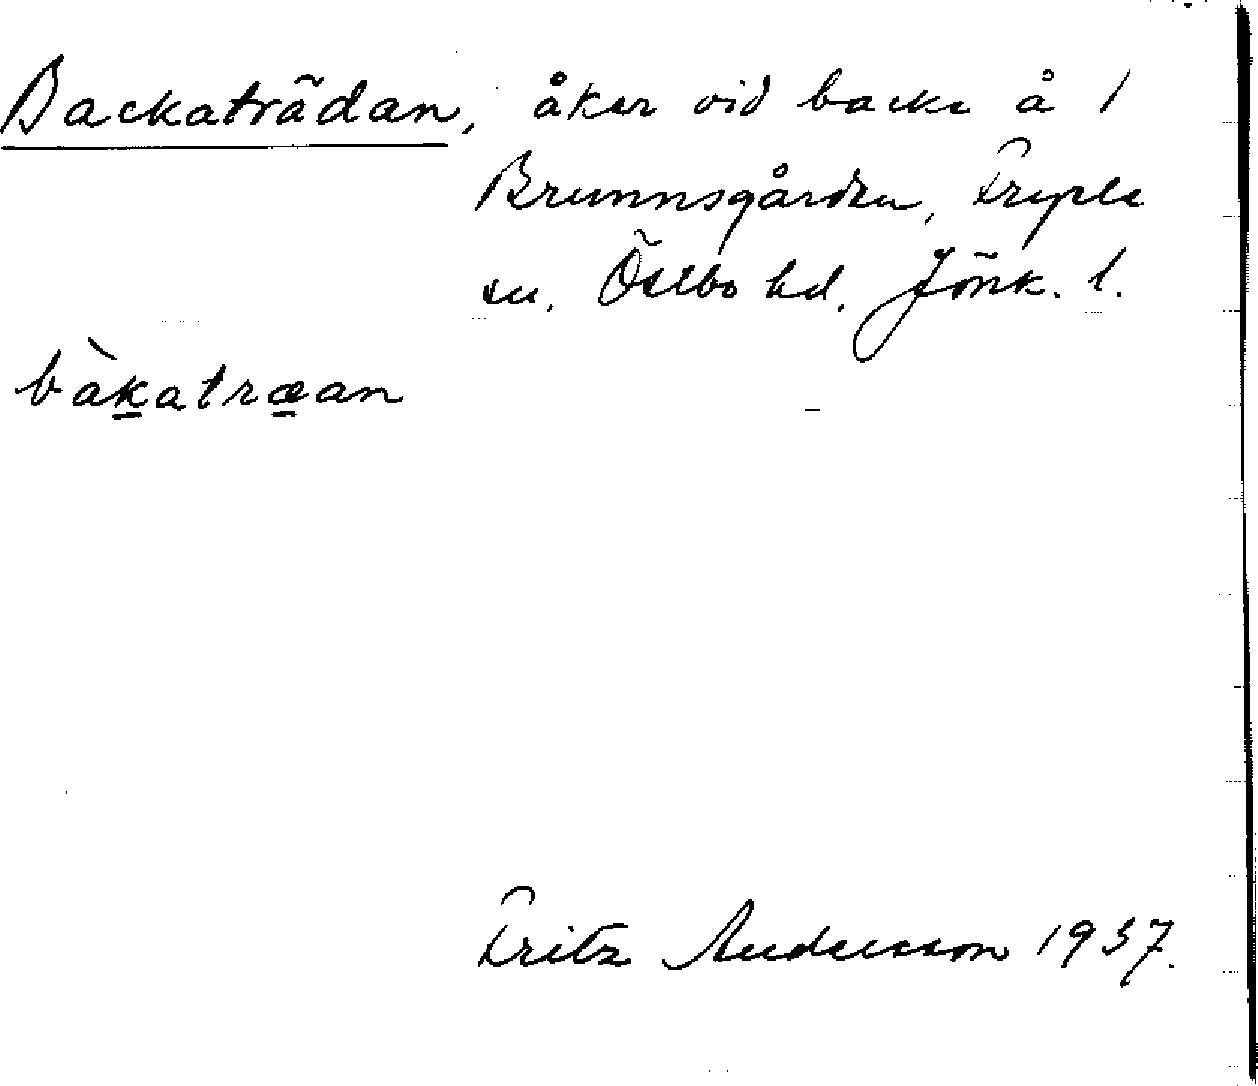 Backaträdan, åker vid backe å 1
Brunnsgården, Fryele
sn. Östbo hd. Jönk. l.
bàkatræan
Fritz Andersson 1937.